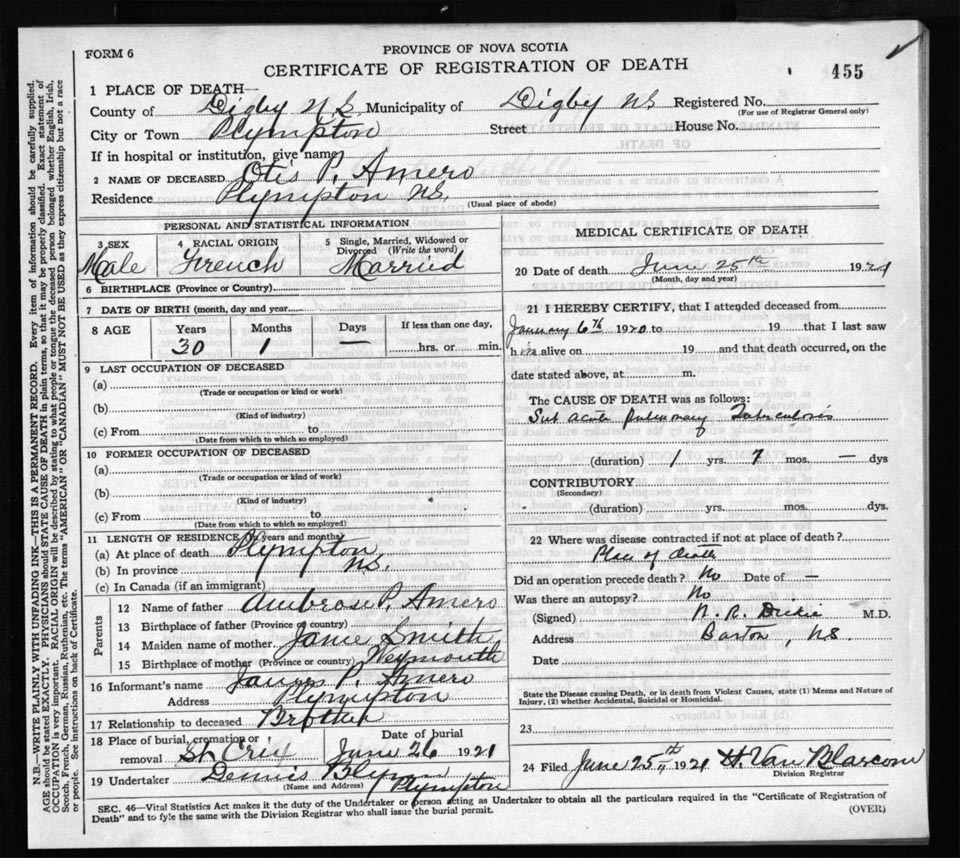 FORM 6
PROVINCE OF NOVA SCOTIA
CERTIFICATE OF REGISTRATION OF DEATH
455
1 PLACE OF DEATH—
County of Digby N.S. Municipality of Digby NS Registered No.
(For use of Registrar General only)
City or Town Plympton Street House No.
If in hospital or institution, give name
2 NAME OF DECEASED Otis P. Amero
Residence Plympton N.S.
(Usual place of abode)
PERSONAL AND STATISTICAL INFORMATION
3 SEX Male
4 RACIAL ORIGIN French
5 Single, Married, Widowed or Divorced (Write the word) Married
6 BIRTHPLACE (Province or Country)
7 DATE OF BIRTH (month, day and year)
8 AGE Years 30 Months 1 Days — If less than one day, hrs. or min.
9 LAST OCCUPATION OF DECEASED
(a)
(Trade or occupation or kind of work)
(b)
(Kind of industry)
(c) From to
(Date from which to which so employed)
10 FORMER OCCUPATION OF DECEASED
(a)
(Trade or occupation or kind of work)
(b)
(Kind of industry)
(c) From to
(Date from which to which so employed)
11 LENGTH OF RESIDENCE (in years and months)
(a) At place of death Plympton
(b) In province N.S.
(c) In Canada (if an immigrant)
Parents
12 Name of father Ambrose P. Amero
13 Birthplace of father (Province or country)
14 Maiden name of mother Janie Smith
15 Birthplace of mother (Province or country) Weymouth
16 Informant's name James P. Amero
Address Plympton
17 Relationship to deceased Brother
18 Place of burial, cremation or removal St. Croix Date of burial June 26 1921
19 Undertaker Dennis Plympton
(Name and Address)
MEDICAL CERTIFICATE OF DEATH
20 Date of death June 25th 1921
(Month, day and year)
21 I HEREBY CERTIFY, that I attended deceased from
January 6th 1920 to 19 that I last saw
him alive on 19 and that death occurred, on the
date stated above, at m.
The CAUSE OF DEATH was as follows:
Sub acute Pulmonary Tuberculosis
(duration) 1 yrs. 7 mos. — dys
CONTRIBUTORY
(Secondary)
(duration) yrs. mos. dys
22 Where was disease contracted if not at place of death?
Place of death
Did an operation precede death? No Date of —
Was there an autopsy? No
(Signed) N. R. M.D.
Address Barton, NS.
Date
State the Disease causing Death, or in death from Violent Causes, state (1) Means and Nature of
Injury, (2) whether Accidental, Suicidal or Homicidal.
23
24 Filed June 25th 1921 H. Van Blarcom
Division Registrar
SEC. 46—Vital Statistics Act makes it the duty of the Undertaker or person acting as Undertaker to obtain all the particulars required in the "Certificate of Registration of
Death" and to fyle the same with the Division Registrar who shall issue the burial permit. (OVER)
N.B.—WRITE PLAINLY WITH UNFADING INK—THIS IS A PERMANENT RECORD. Every item of information should be carefully supplied.
AGE should be stated EXACTLY. PHYSICIANS should STATE CAUSE OF DEATH in plain terms, so that it may be properly classified. Exact statement of
OCCUPATION is very important. RACIAL ORIGIN will be described by stating to what people or tongue the deceased person belonged whether English, Irish,
Scotch, French, German, Russian, Ruthenian, etc. The terms "AMERICAN" OR "CANADIAN" MUST NOT BE USED as they express citizenship but not a race
or people. See instructions on back of Certificate.